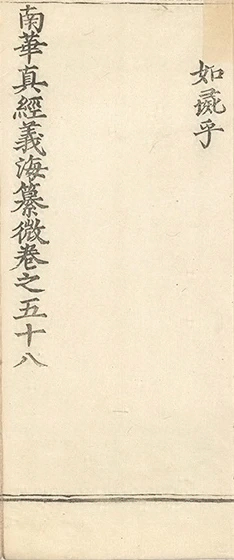 如彘乎
南華真經義海纂微卷之五十八